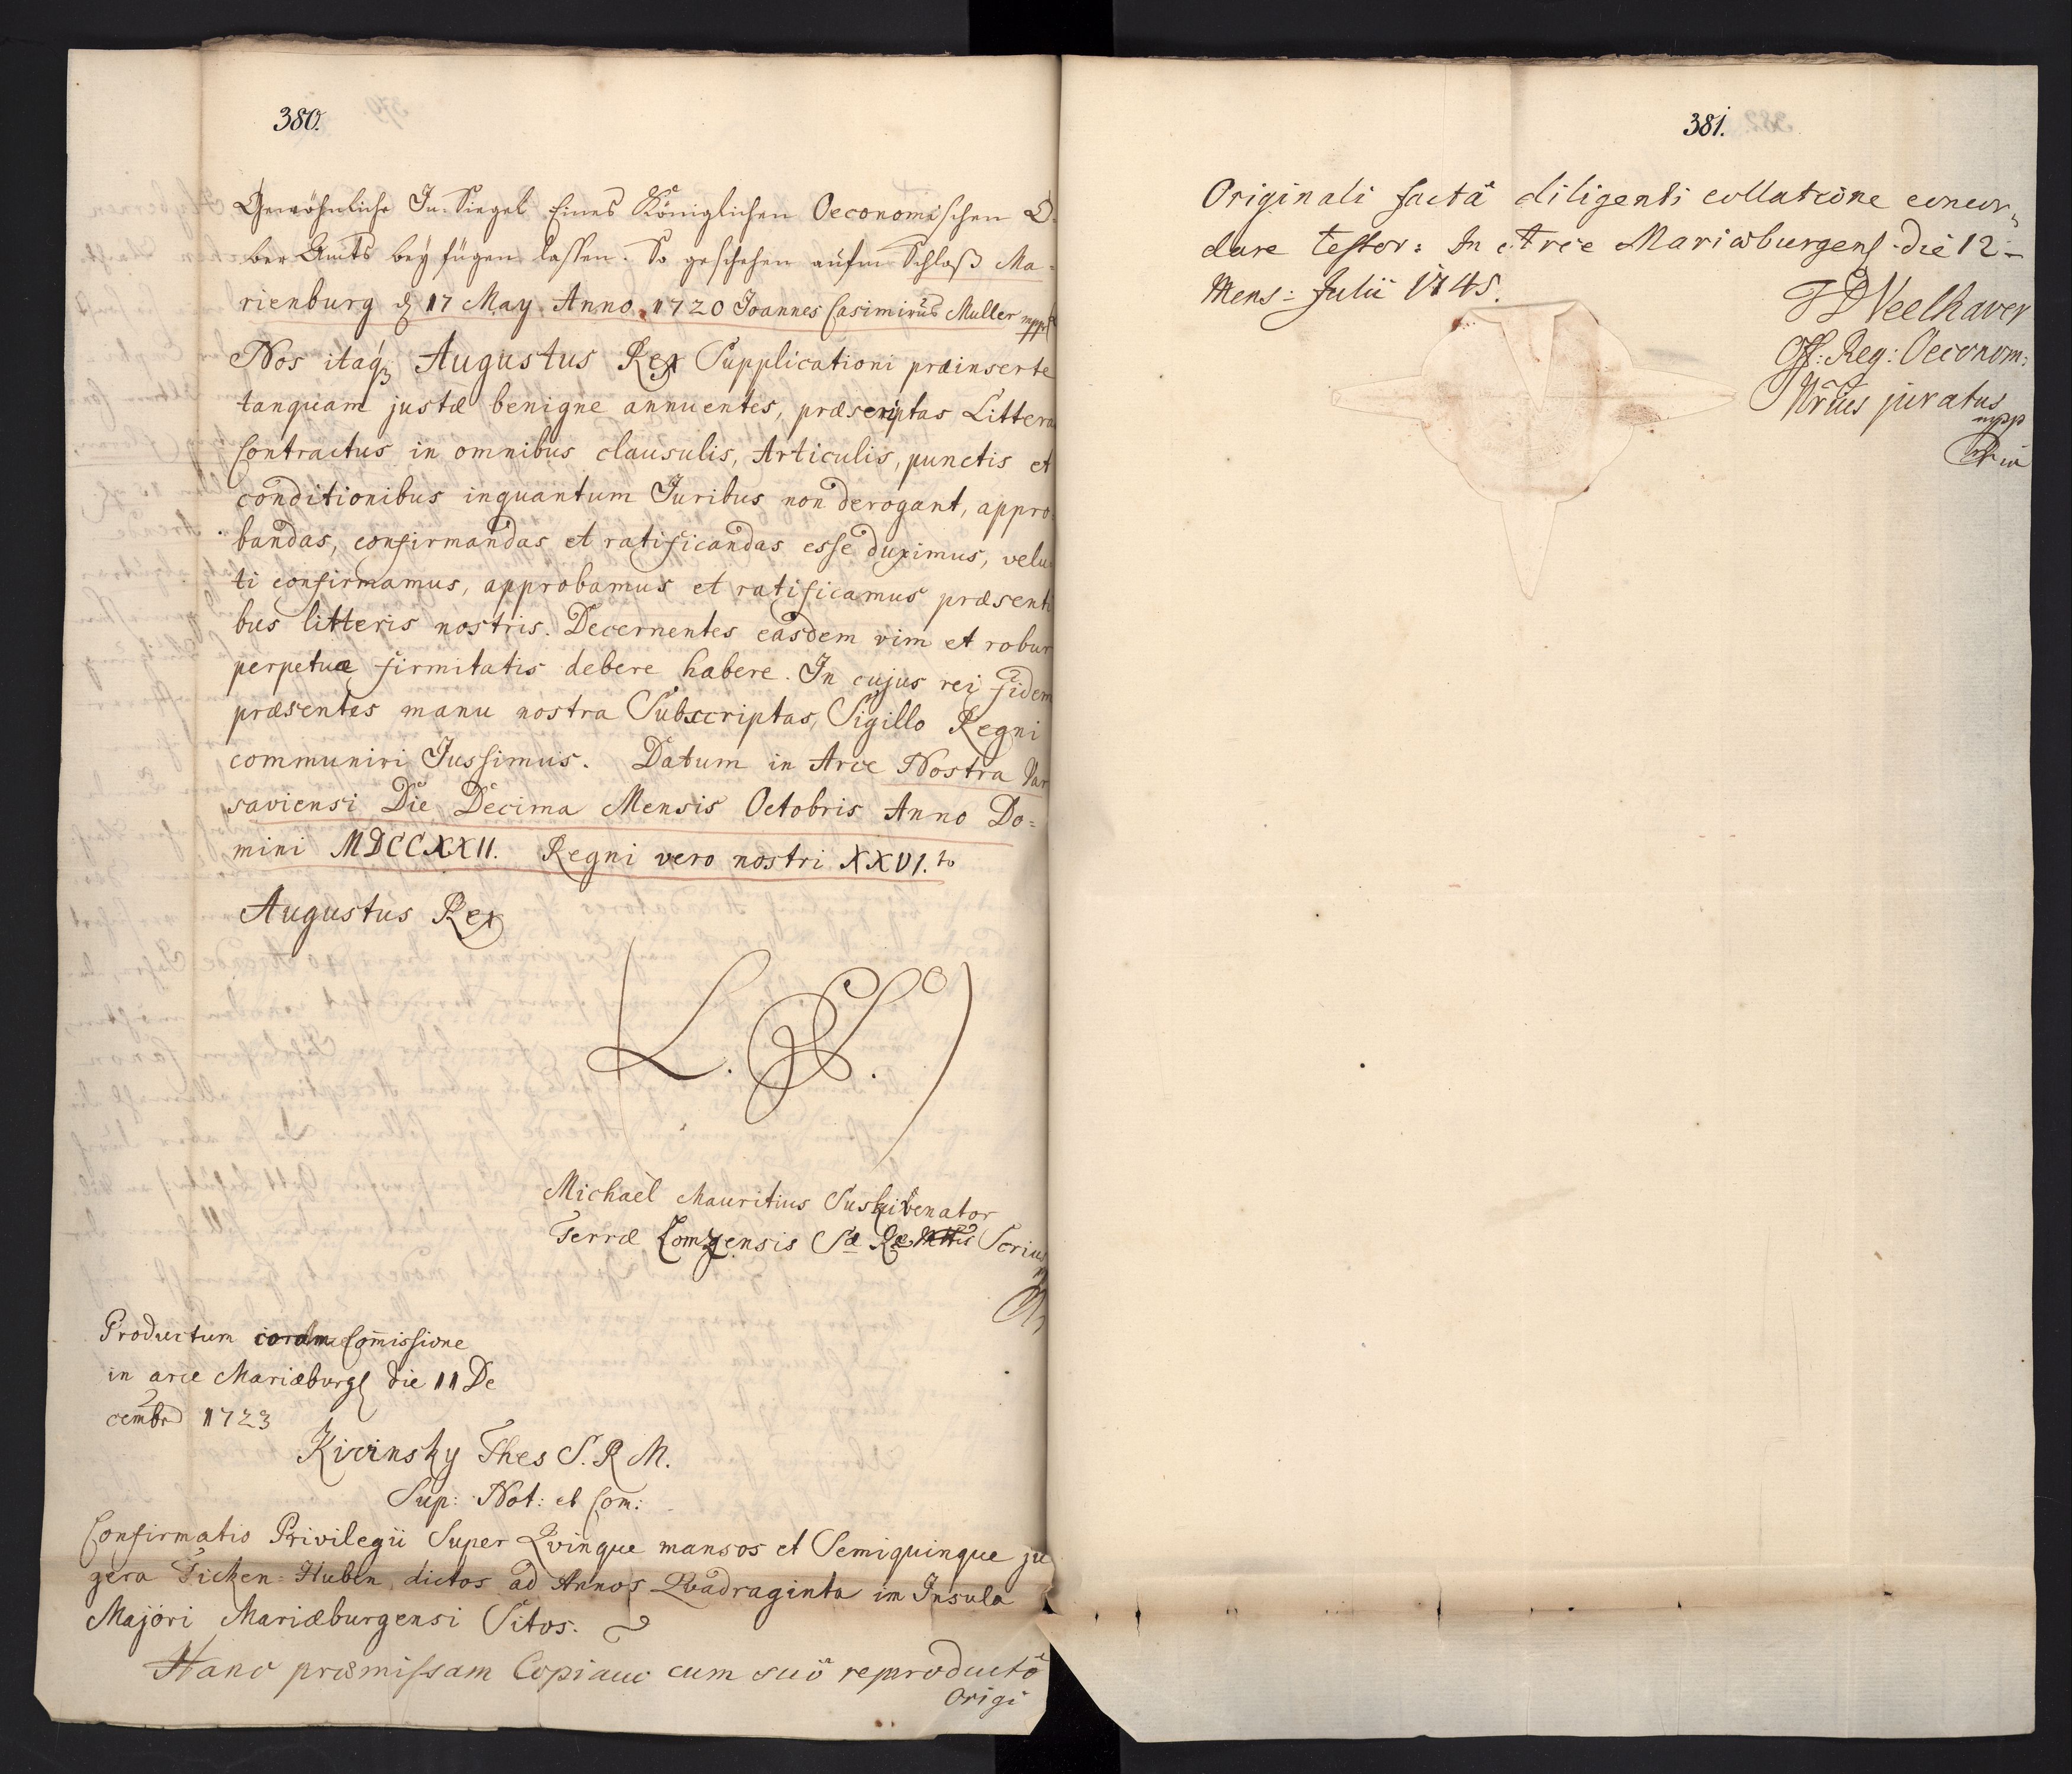 380.
Gewöhnliche In-Siegel Eines Königlichen Oeconomischen O-
ber Amts bey fügen lassen. So geschehen aufm Schloß Ma-
rienburg d 17 May Anno 1720 Joannes Casimirus Muller mppr
Nos itaq3 Augustus Rex Supplicationi præinserte
tanquam justæ benigne annuentes, præscriptas Littera
Contractus in omnibus clausulis, Articulis, punctis et
conditionibus inquantum Juribus non derogant, appro-
bandas, confirmandas et ratificandas esse duximus, velu-
ti confirmamus, approbamus et ratificamus præsenti
bus litteris nostris. Decernentes easdem vim et robur
perpetuæ firmitatis debere habere. In cujus rei fidem
præsentes manu nostra Subscriptas, Sigillo Regni
communiri Jussimus. Datum in Arce Nostra Var
saviensi Die Decima Mensis Octobris Anno Do=
mini MDCCXXII. Regni vero nostri XXVI.to
Augustus Rex
(L. S.)
Michaël Mauritius Suski Venator
Terræ Lomzensis Sæ Ræ Mttis Scrius
Productum coram Com̄issione
in arce Mariæburg die 11 De
cembr 1723
Kicinsky Thes S. R M.
Sup: Not: et Com:
Confirmatio Privilegii Super Qvinque mansos et Semiquinque ju
gera Ticken-Huben dictos ad Annos Qvadraginta in Insula
Majori Mariæburgensi Sitos.
Hanc præmissam Copiam cum suô reproductô
Origi
381.
Originali factâ diligenti collatione concor-
dare testor: In Arce Mariæburgens die 12-
Mens: Julii 1745.
Veelhaver
Off: Reg: Oeconom:
Nrius juratus
mpp